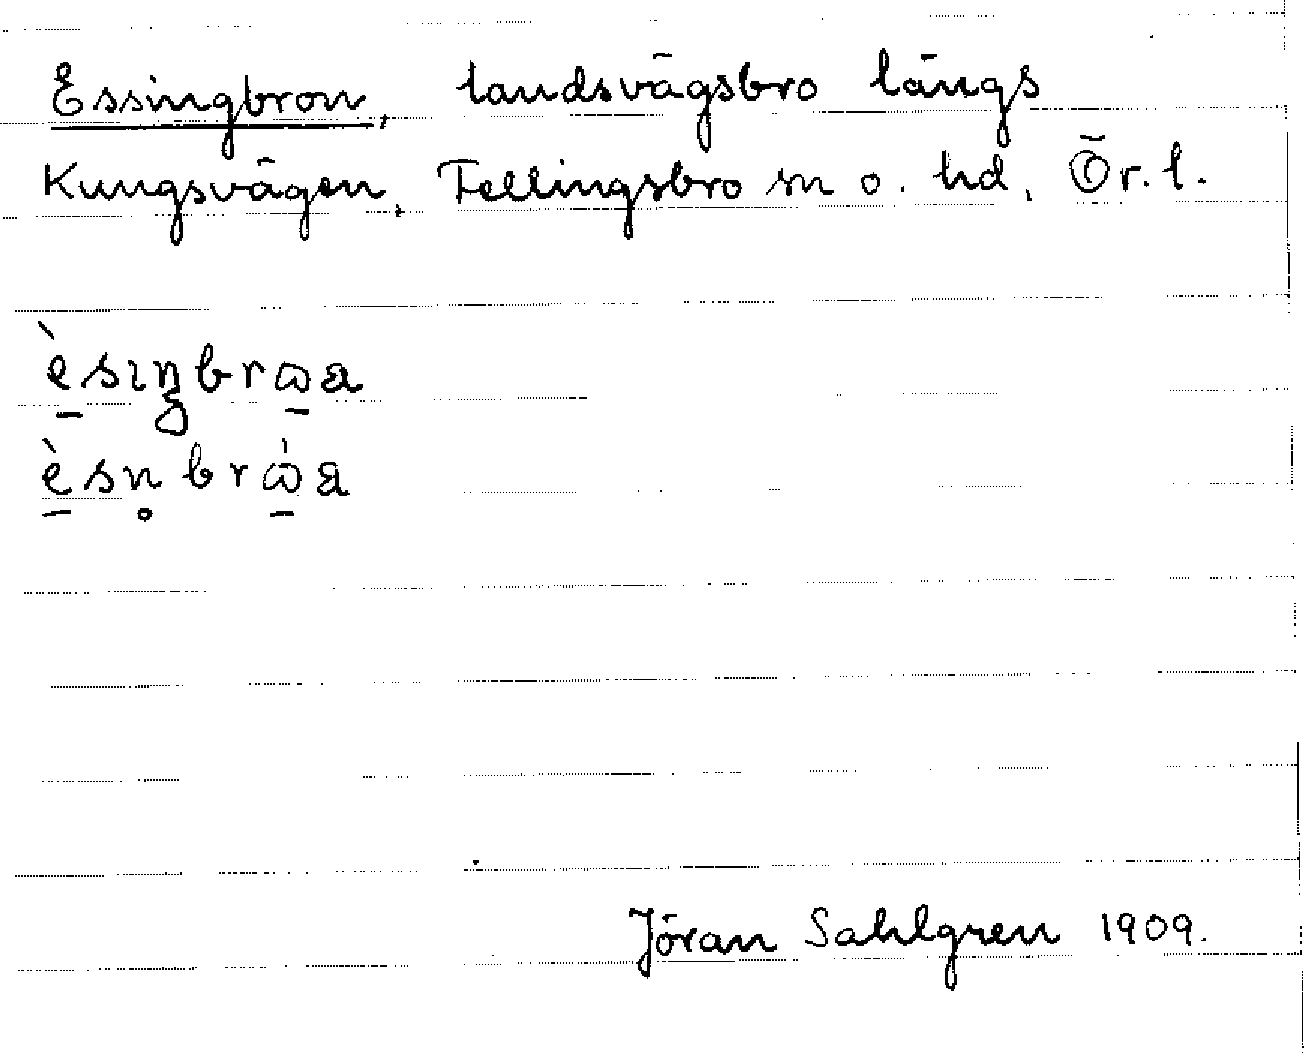 Essingbron, landsvägsbro längs
Kungsvägen, Fellingsbro sn o. hd, Ör. l.
èsıŋbrɷa
èsn̥brɷ̀a
Jöran Sahlgren 1909.